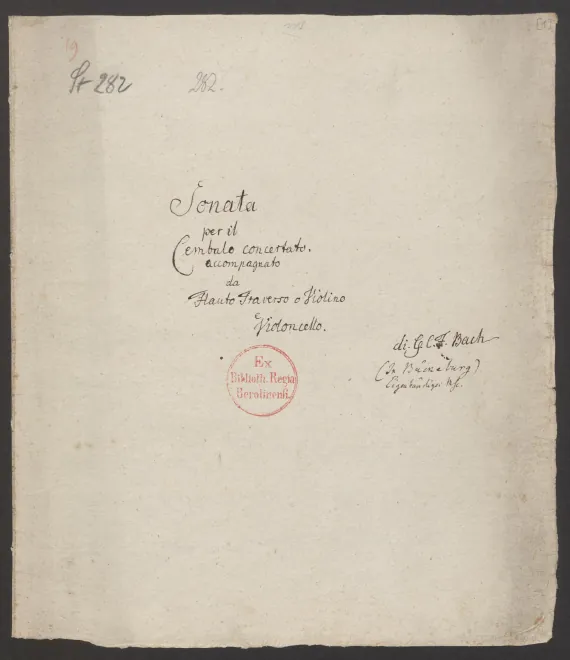 19
St 282
282.
[1]
Sonata
per il
Cembalo concertato.
accompagnato
da
Flauto Traverso o Violino
e
Violoncello.
di. G. C. F. Bach
(In Bückeburg)
Eigenhändige Hs.
Ex
Biblioth. Regia
Berolinensi.